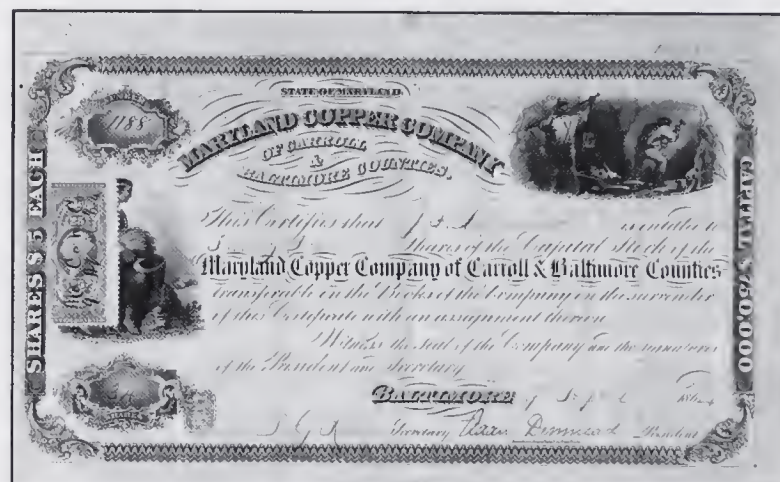 STATE OF MARYLAND
1188
MARYLAND COPPER COMPANY
OF CARROLL
&
BALTIMORE COUNTIES.
SHARES $ 5 EACH
CAPITAL $750,000
This Certifies that is entitled to
Shares of the Capital Stock of the
Maryland Copper Company of Carroll & Baltimore Counties
transferable on the Books of the Company on the surrender
of this Certificate with an assignment thereon
Witness the Seal of the Company and the signatures
of the President and Secretary
SHARES
BALTIMORE 1864
Secretary President